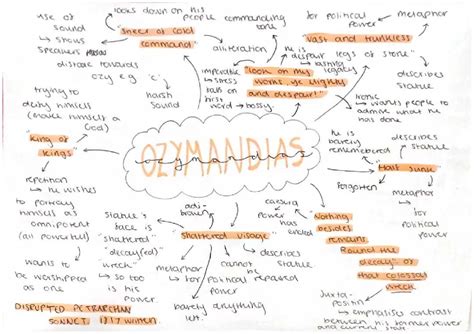 looks down on his
people commanding
tone
use of
sound
→ shows
speakers
distaste towards
ozy e.g 'c'
"sneer of cold
command"
alliteration
harsh
sound
for political
power
metaphor
"vast and trunkless
legs of stone"
describes
statue
he is
despair
→ lasting
legacy
imperative
→ stress
falls on
first
word → bossy
"look on my
works, ye mighty
and despair!"
ironic
→ wants people to
admire what he
has done
trying to
deify himself
(make himself a
God)
"King of
Kings"
repetition
→ he wishes
to portray
himself as
omnipotent
(all powerful)
wants to
be worshipped
as one
is his
power
OZYMANDIAS
ozymandias
he is
barely
remembered
describes
statue
"Half sunk"
forgotten
metaphor
for
political
power
statue's
face is
"shattered"
"decay(ed)"
"wreck"
→ so too
is his
power
"shattered visage"
describes
statue
metaphor
for political
power
cannot
be
repaired
barely anything
left.
caesura
power
has
ended
"Nothing
besides
remains.
Round the
decay of
that colossal
wreck"
juxta-
position
→ emphasises contrast
between his former power
and current
DISRUPTED PETRARCHAN
SONNET. 1817 written